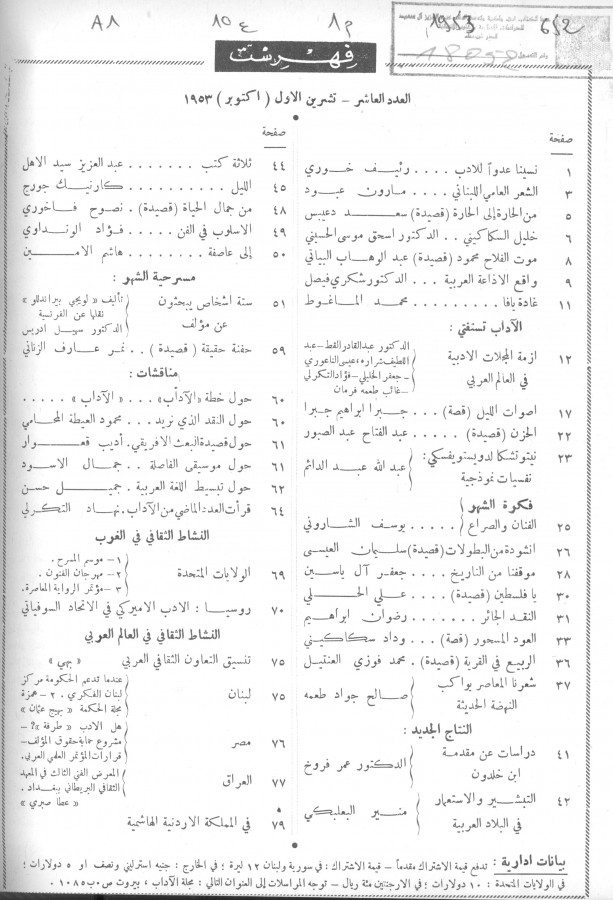 A٨ ١٥٤ ١٩٥٣ 652
فهرست
العدد العاشر – تشرين الاول ( اكتوبر ) ١٩٥٣
صفحة
١ نسينا عدواً للادب . . . . رئيف خوري
٣ الشعر العامي اللبناني . . . . مارون عبود
٥ من الحارة إلى الحارة (قصيدة) سعد دعيبس
٦ خليل السكاكيني . . الدكتور اسحق موسى الحسيني
٨ موت الفلاح محمود (قصيدة) عبد الوهاب البياتي
٩ واقع الاذاعة العربية . . . الدكتور شكري فيصل
١١ غادة يافا . . . . . . . محمد الماغوط
الآداب تستفتي :
١٢ ازمة المجلات الادبية في العالم العربي
الدكتور عبد القادر القط – عبد
اللطيف شراره، عيسى الناعوري
– جعفر الخليلي – فؤاد التكرلي
– غائب طعمه فرمان
١٧ اصوات الليل (قصة) . . جبرا ابراهيم جبرا
٢٢ الحزن (قصيدة) . . . . . عبد الفتاح عبد الصبور
٢٣ نيتوتشكا لدويستويفسكي : نفسيات نموذجية
عبد الله عبد الدائم
فكرة الشهر
٢٥ الفنان والصراع . . . . . يوسف الشاروني
٢٦ انشودة من البطولات (قصيدة) سليمان العيسى
٢٨ موقفنا من التاريخ . . . . جعفر آل ياسين
٣٠ يا فلسطين (قصيدة) . . . . علي الحلي
٣١ النقد الجائر . . . . . . . رضوان ابراهيم
٣٣ العود المسحور (قصة) . . وداد سكاكيني
٣٦ الربيع في القرية (قصيدة) . محمد فوزي العنتيل
٣٧ شعرنا المعاصر يواكب النهضة الحديثة
صالح جواد طعمه
النتاج الجديد :
٤١ دراسات عن مقدمة ابن خلدون
الدكتور عمر فروخ
٤٢ التبشير والاستعمار في البلاد العربية
منير البعلبكي
صفحة
٤٤ ثلاثة كتب . . . . . . . عبد العزيز سيد الاهل
٤٥ الليل . . . . . . . . . كارنيك جورج
٤٨ من جمال الحياة (قصيدة) . نصوح فاخوري
٤٩ الاسلوب في الفن . . . . فؤاد الونداوي
٥٠ إلى عاصفة . . . . . . . هاشم الامين
مسرحية الشهر :
٥١ ستة اشخاص يبحثون عن مؤلف
تأليف « لويجي بيراندللو »
نقلها عن الفرنسية
الدكتور سهيل ادريس
٥٩ حفنة حقيقة ( قصيدة ) . . نمر عارف الزناتي
مناقشات :
٦٠ حول خطة «الآداب» . . . «الآداب» . . . . .
٦٠ حول النقد الذي نريد . . . محمود العبطة المحامي
٦١ حول قصيدة البعث الافريقي . أديب قعوار
٦١ حول موسيقى الفاصلة . . جمال الاسود
٦٢ حول تبسيط اللغة العربية . جميل حسن
٦٤ قرأت العدد الماضي من الآداب . نهاد التكرلي
النشاط الثقافي في الغرب
٦٩ الولايات المتحدة
١ – موسم المسرح .
٢ – مهرجان الفنون .
٣ – مؤتمر الرواية المعاصرة.
٧٠ روسيا : الادب الاميركي في الاتحاد السوفياتي
النشاط الثقافي في العالم العربي
٧٥ تنسيق التعاون الثقافي العربي « بهي »
٧٥ لبنان
عندما تدعم الحكومة مركز
لبنان الفكري . ٢ – همزة
مجلة الحكمة « بهيج عثمان »
٧٦ مصر
هل الادب « طرفة » ؟ –
مشروع حماية حقوق المؤلف –
قرارات المؤتمر العلمي العربي.
٧٧ العراق
المعرض الفني الثالث في المعهد
الثقافي البريطاني ببغداد .
« عطا صبري »
٧٩ في المملكة الاردنية الهاشمية
بيانات ادارية : تدفع قيمة الاشتراك مقدماً – قيمة الاشتراك : في سورية ولبنان ١٢ ليرة ؛ في الخارج : جنيه استرليني ونصف او ٥ دولارات ؛
في الولايات المتحدة : ١٠ دولارات ؛ في الارجنتين مئة ريال – توجه المراسلات إلى العنوان التالي : مجلة الآداب ، بيروت ص . ب ١٠٨٥